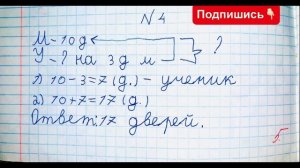 №4
Подпишись
М - 10 д
У - ? на 3 д м
?
1) 10 - 3 = 7 (д.) - ученик
2) 10 + 7 = 17 (д.)
Ответ: 17 дверей.
5